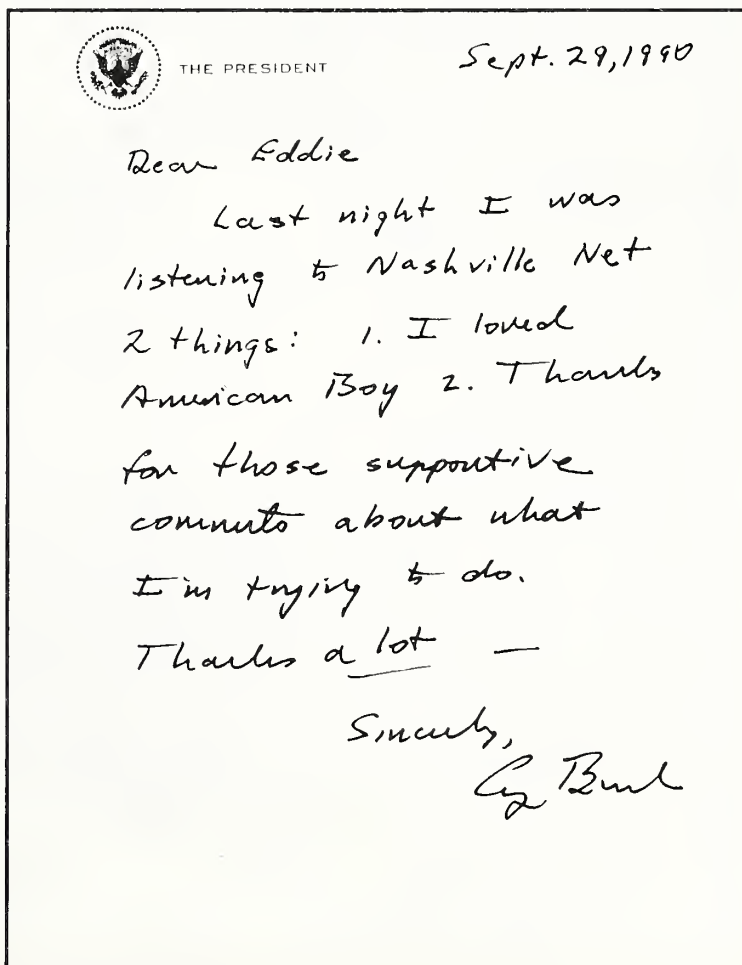 THE PRESIDENT
Sept. 29, 1990
Dear Eddie
Last night I was
listening to Nashville Net
2 things: 1. I loved
American Boy 2. Thanks
for those supportive
comments about what
I'm trying to do.
Thanks a lot —
Sincerely,
G Bush